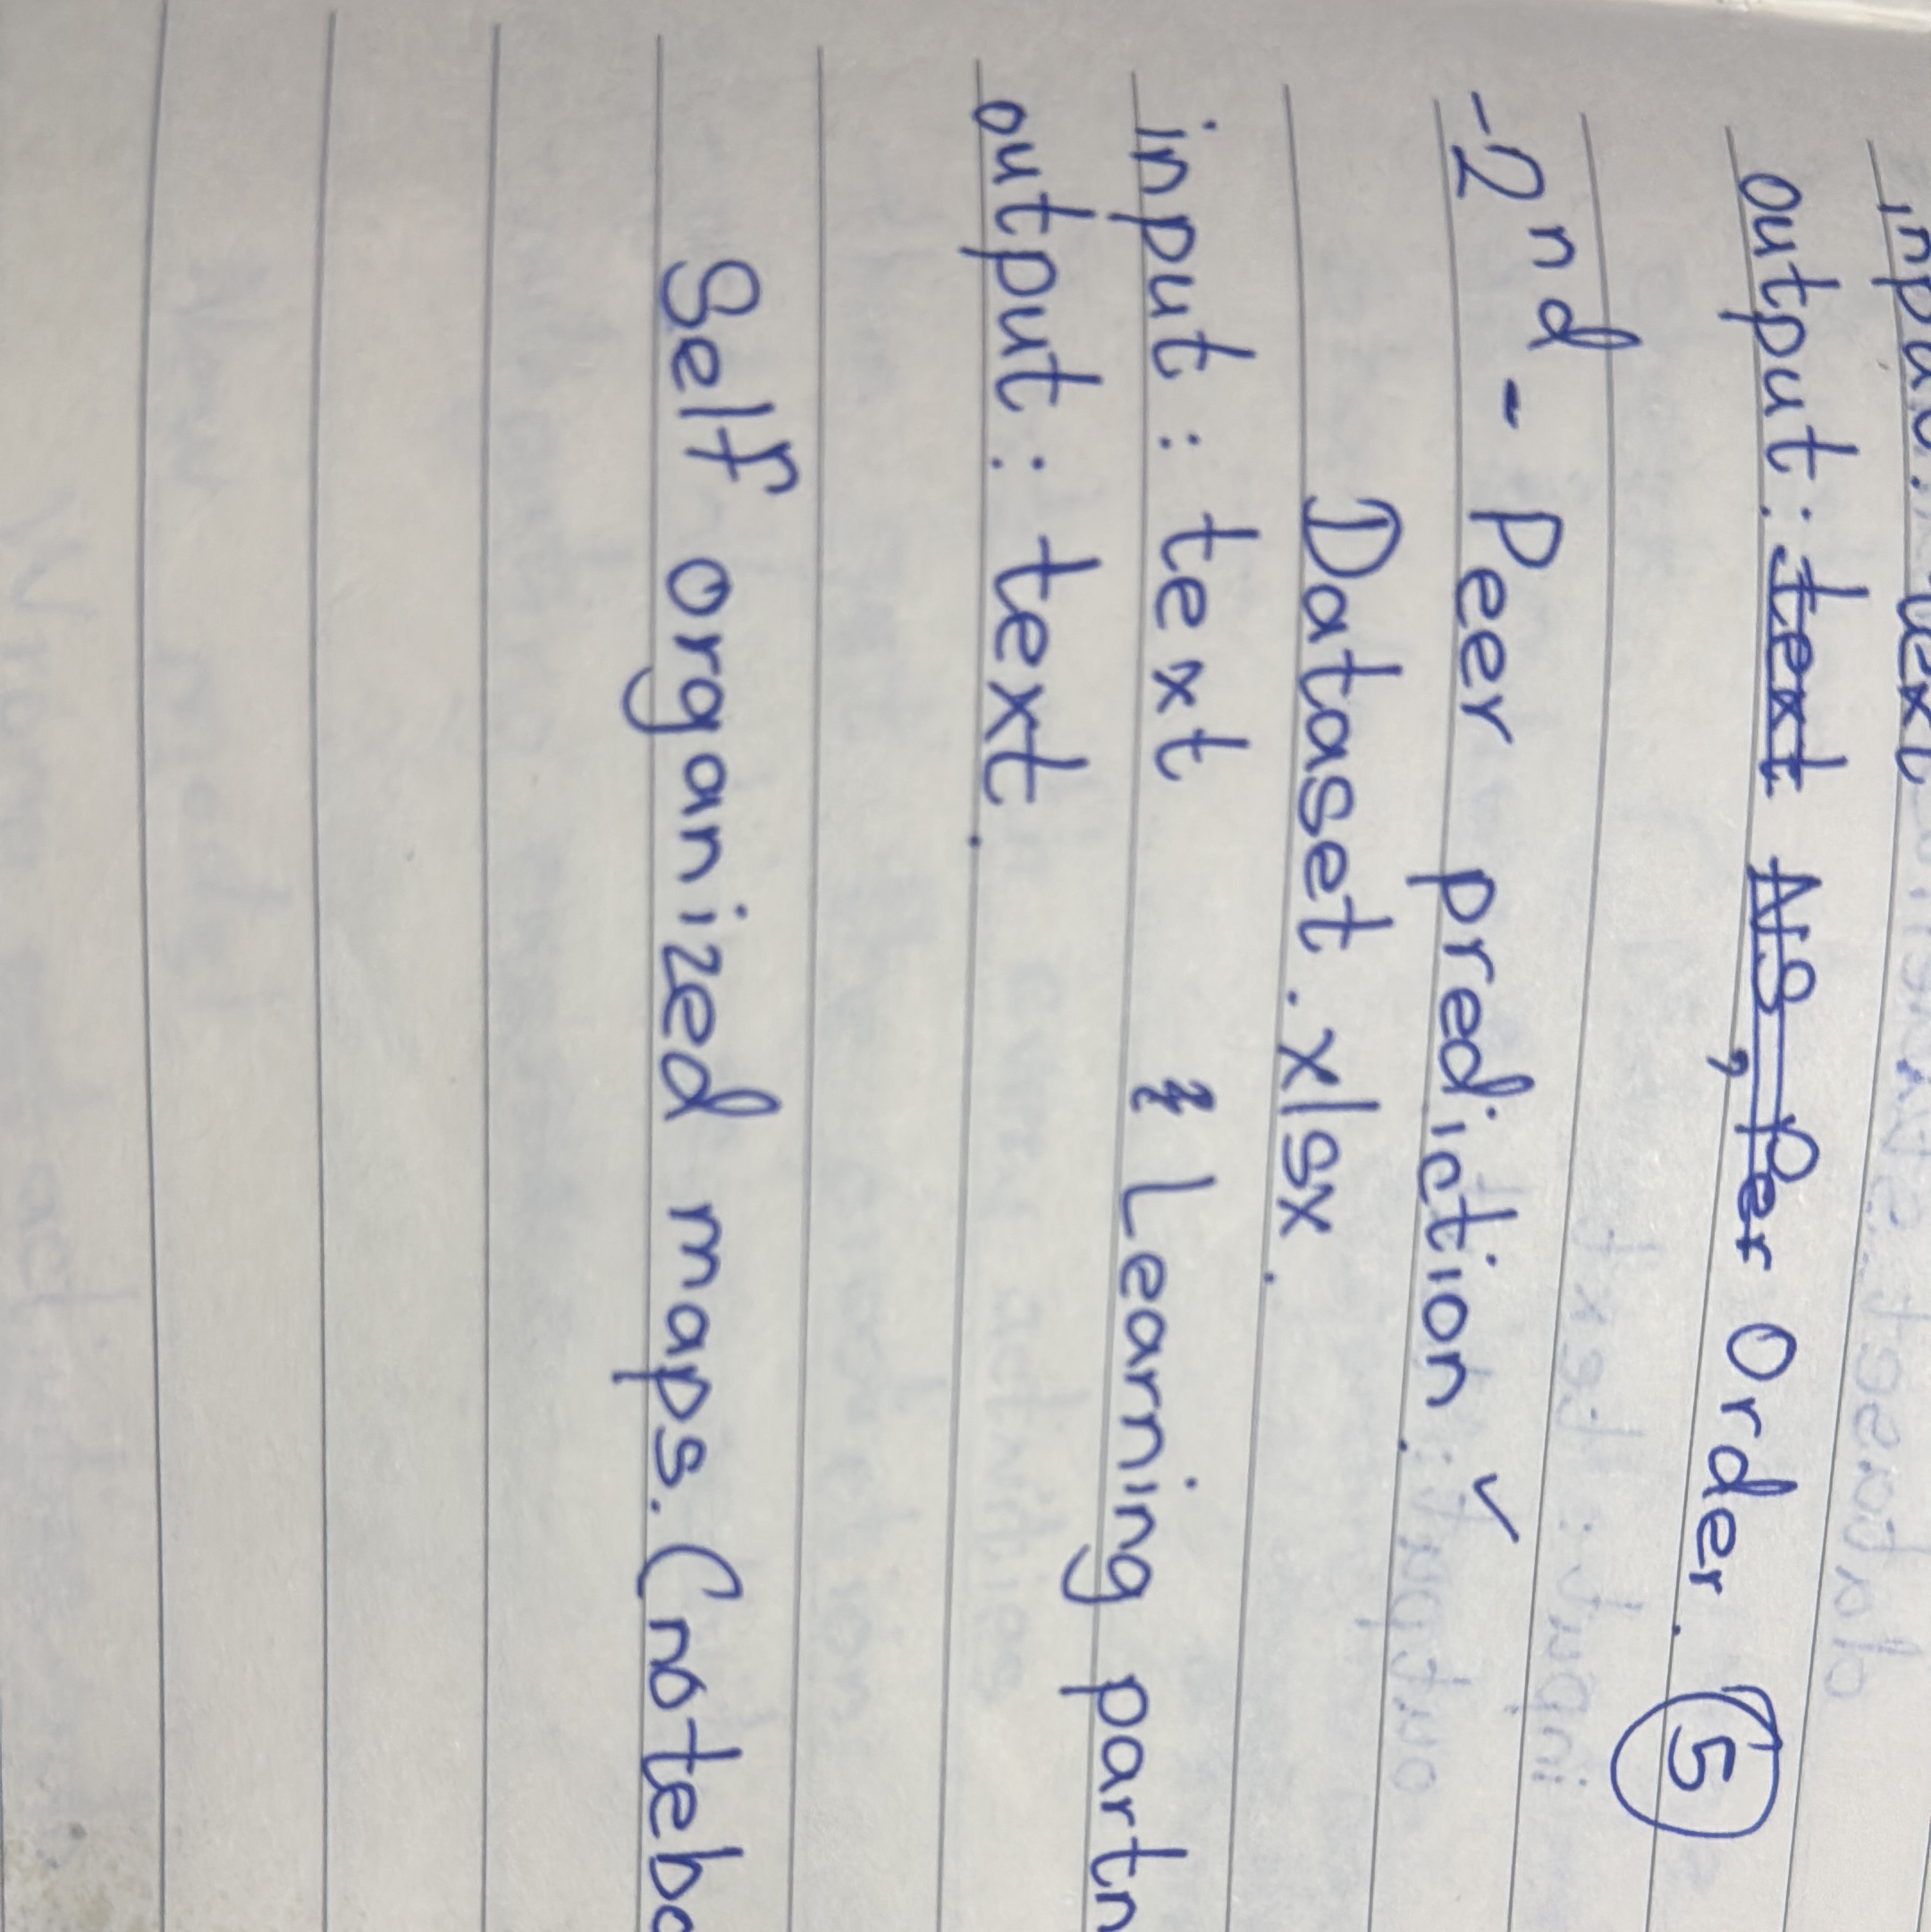 input: text
output: text NS, Per Order. 5
-2nd - Peer prediction. ✓
Dataset.xlsx.
input: text & Learning partn
output: text.
Self organized maps. (notebo